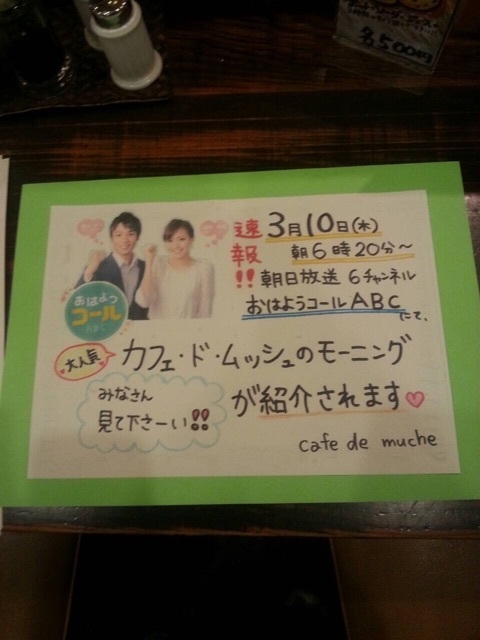 各500円
速報!!
3月10日(木)
朝6時20分~
朝日放送 6チャンネル
おはようコールABC
にて、
おはよう
コール
ABC
大人気
カフェ・ド・ムッシュのモーニング
が紹介されます♡
みなさん
見て下さーい!!
cafe de muche